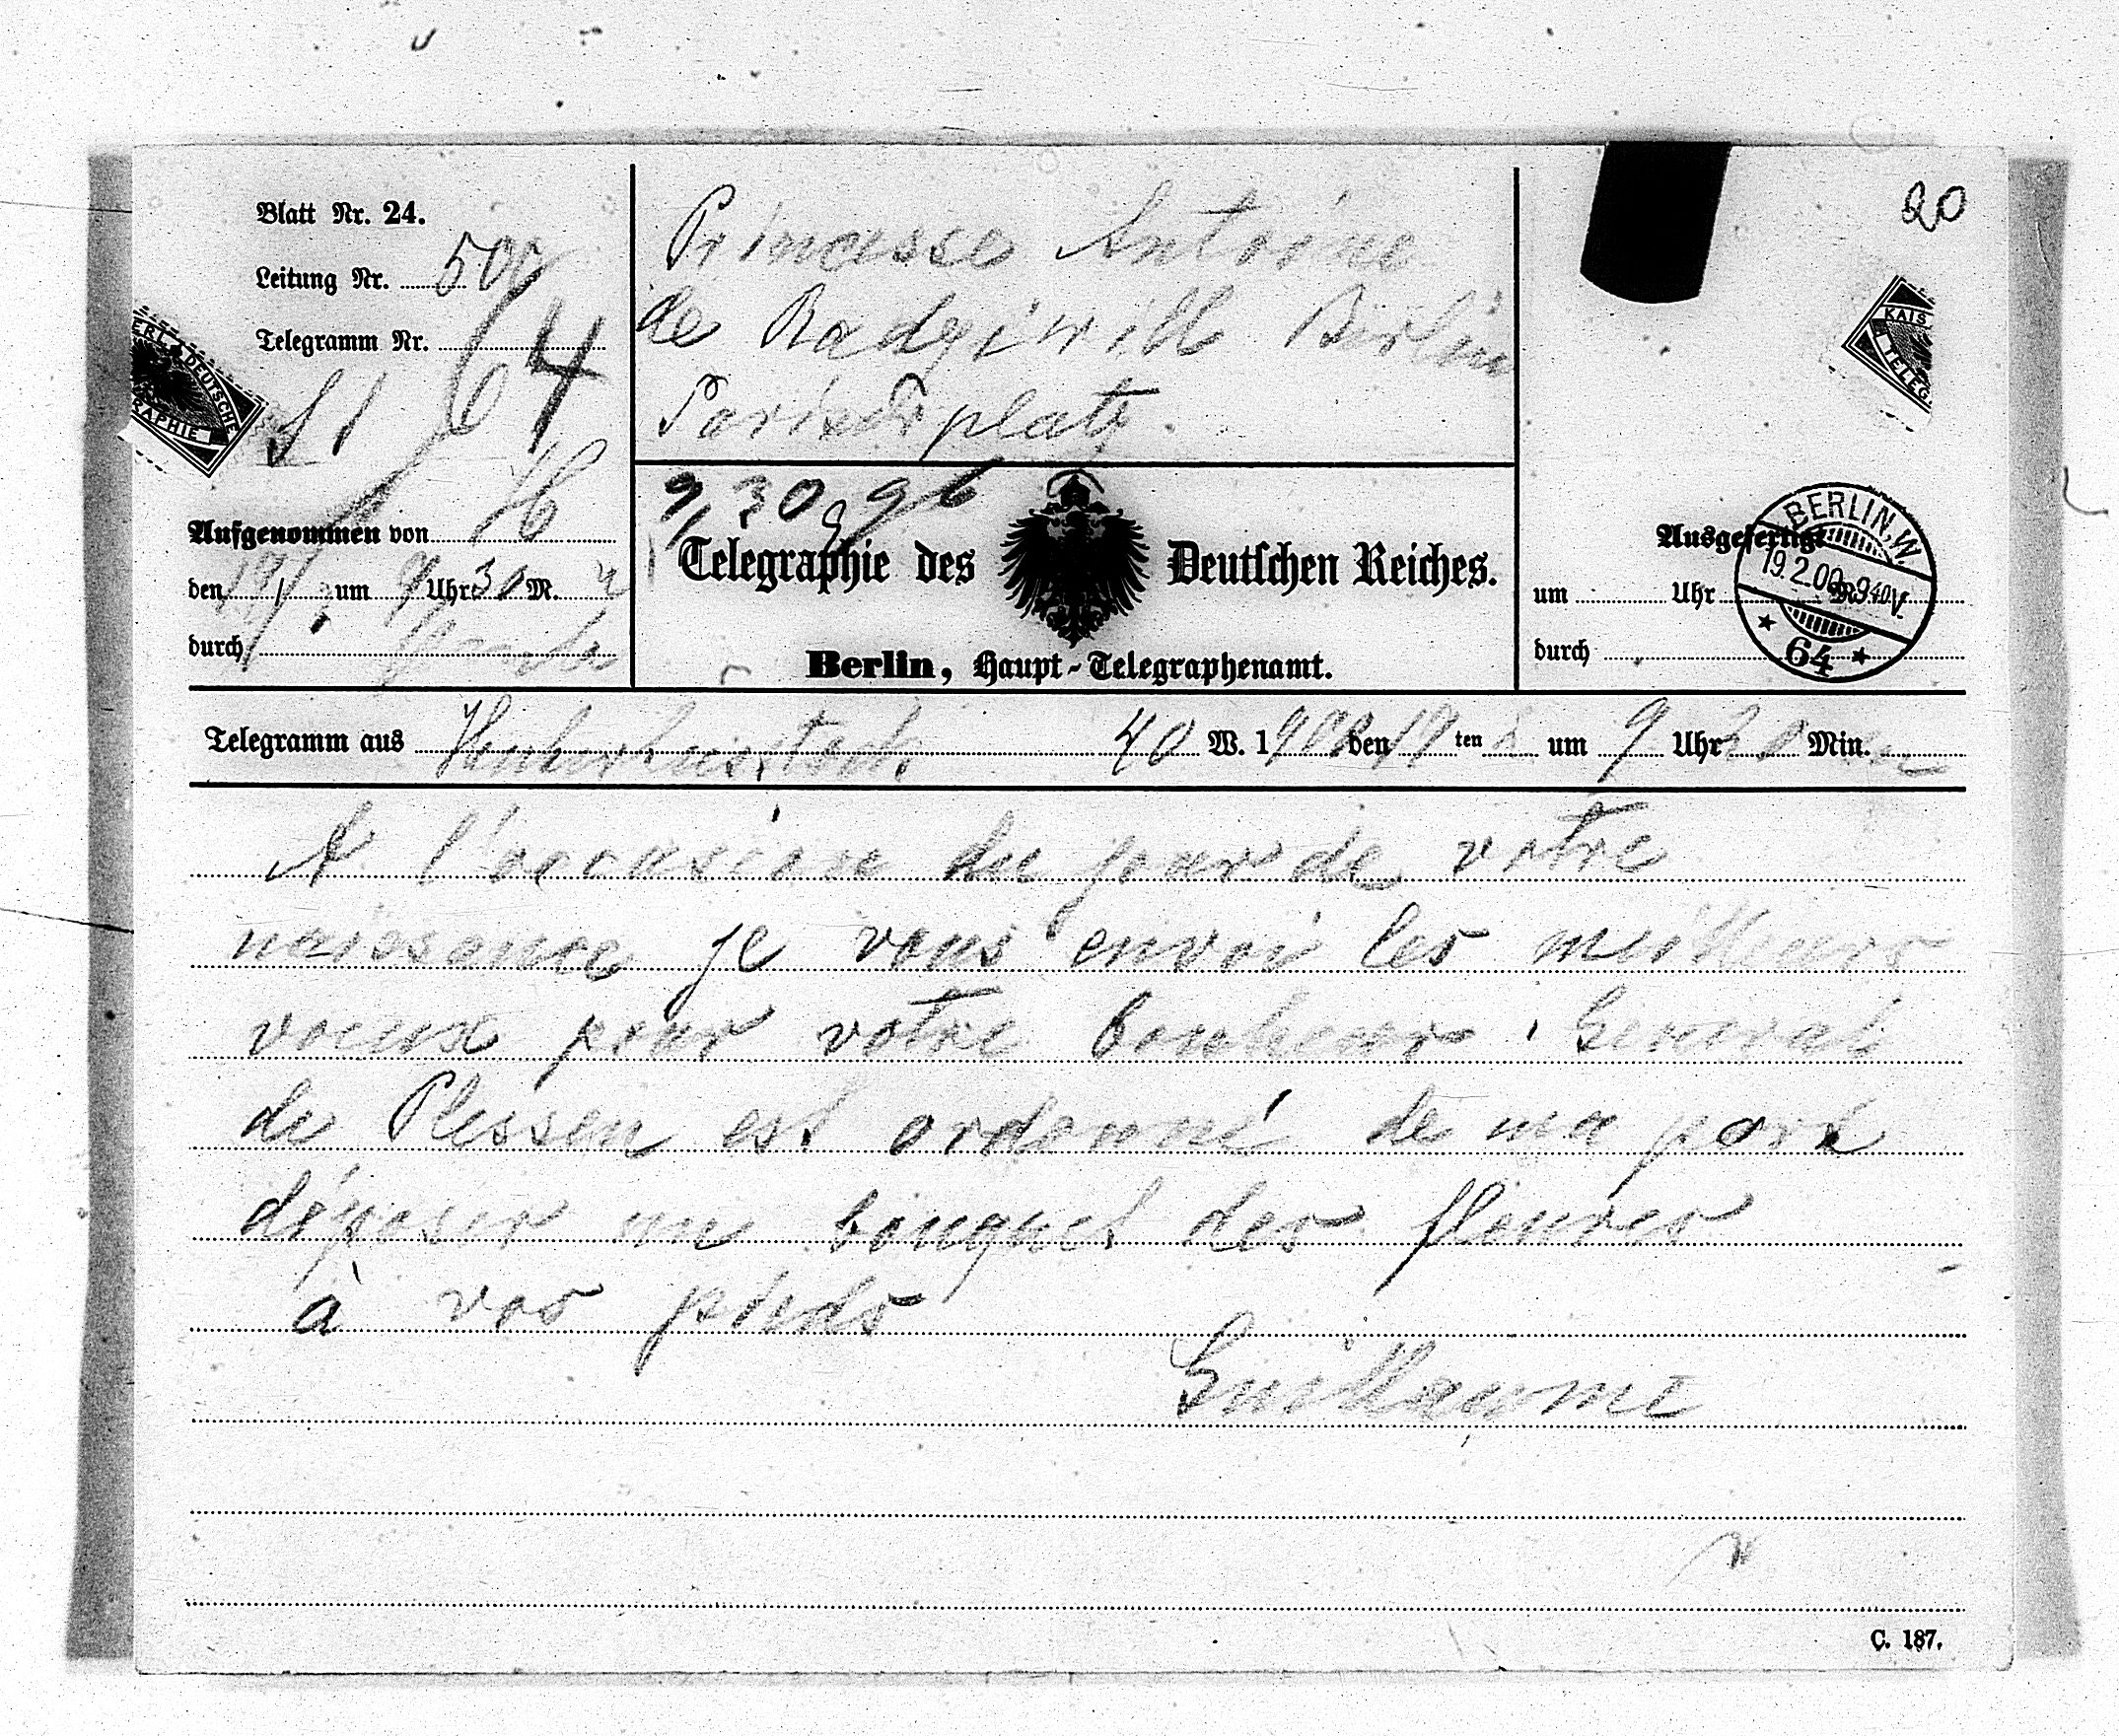 20
Blatt Nr. 24.
Leitung Nr. 500
Telegramm Nr.
64
Aufgenommen von
den 19/2 um 9 Uhr 30 M.
durch
Princesse Antoine
de Radgiwill Berlin
Pariserplatz.
9/30
Telegraphie des Deutschen Reiches.
Berlin, Haupt-Telegraphenamt.
KAIS
TELEG
Ausgefertigt
um Uhr
durch
BERLIN, W.
19.2.00. 940V.
64
Telegramm aus Hubertusstock 40 W. 1900 den 19 ten 2 um 9 Uhr 20 Min.
A l'occasion du jour de votre
naissance je vous envoi les meilleurs
voeux pour votre bonheur. General
de Plessen est ordonné de ma part
déposer un bouquet des fleures
à vos pieds
Guillaume
C. 187.